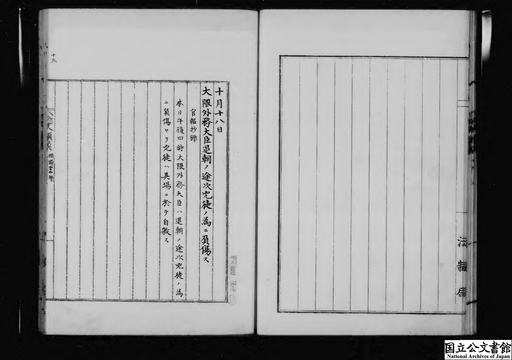 十月十八日
大隈外務大臣退朝ノ途次兇徒ノ為ニ負傷ス
官報抄録
本日午後四時大隈外務大臣ハ退朝ノ途次兇徒ノ為
ニ負傷セリ兇徒ハ其場ニ於テ自殺ス
国立公文書館
National Archives of Japan